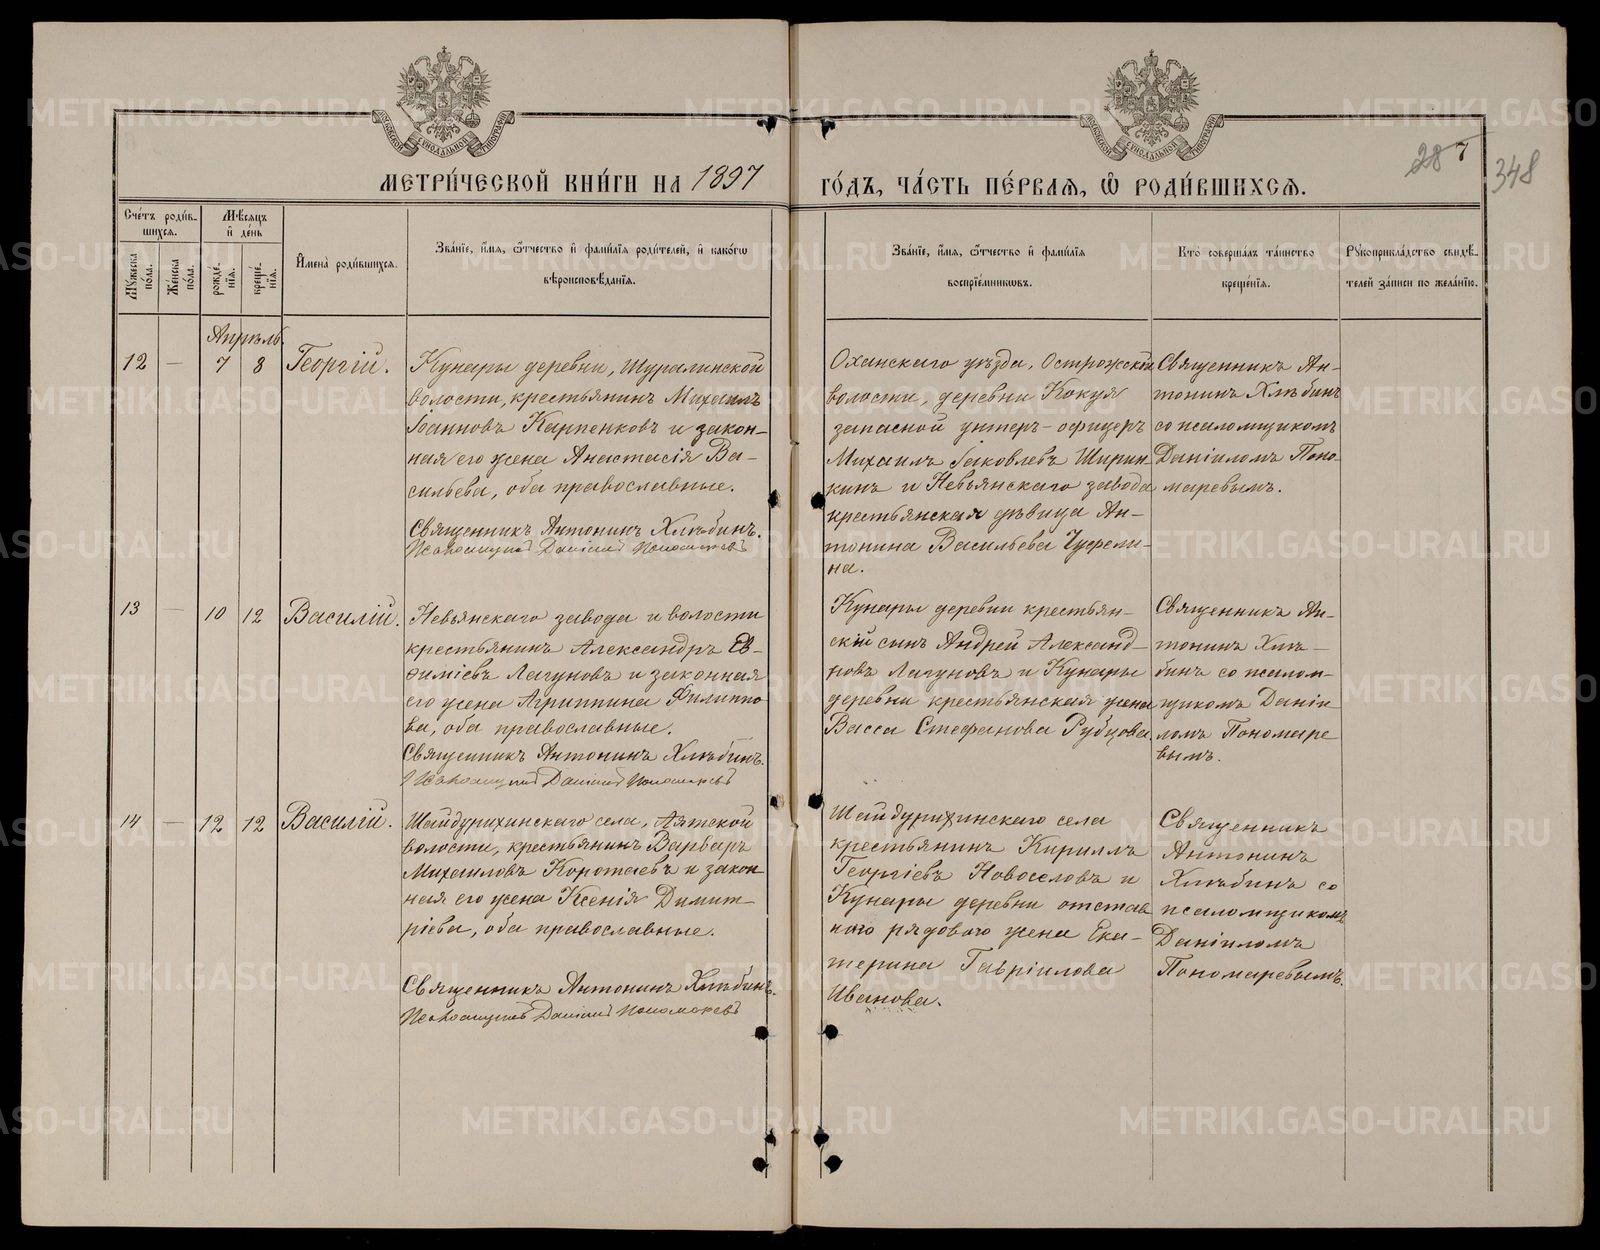 МЕТРИ́ЧЕСКОЙ КНИ́ГИ НА 1897 ГО́ДЪ, ЧА́СТЬ ПЕ́РВАѦ, Ѽ РОДИ́ВШИХСѦ.
28 7
348
Сче́тъ роди́в-
шихсѧ.
Мѣ́сѧцъ
и҆ де́нь
Мꙋ́жеска по́ла.
Же́нска по́ла.
рожде́-
нїѧ.
креще́-
нїѧ.
И҆мена̀ роди́вшихсѧ.
Зва́нїе, и҆́мѧ, ѻ҆́тчество и҆ фами́лїѧ роди́телей, и҆ како́гѡ
вѣроисповѣ́данїѧ.
Зва́нїе, и҆́мѧ, ѻ҆́тчество и҆ фами́лїѧ
воспрїе́мникѡвъ.
Кто̀ соверша́лъ та́инство
креще́нїѧ.
Рꙋкоприкла́дство свидѣ́-
телей за́писи по жела́нїю.
Апрѣль.
12 — 7 8 Георгій.
Кунары деревни, Шуралинской
волости, крестьянинъ Михаилъ
Іоанновъ Карпенковъ и закон-
ная его жена Анастасія Ва-
сильева, оба православные.
Священникъ Антонинъ Хлѣбинъ.
Псаломщикъ Даніилъ Пономаревъ
Оханскаго уѣзда, Острожской
волости, деревни Кокуя
запасной унтеръ-офицеръ
Михаилъ Іаковлевъ Ширин-
кинъ и Невьянскаго завода
крестьянская дѣвица Ан-
тонина Васильева
на.
Священникъ Ан-
тонинъ Хлѣбинъ
со псаломщикомъ
Даніиломъ Поно-
маревымъ.
13 — 10 12 Василій.
Невьянскаго завода и волости
крестьянинъ Александръ Ев-
ѳиміевъ Лагуновъ и законная
его жена Агриппина Филиппо-
ва, оба православные.
Священникъ Антонинъ Хлѣбинъ.
Псаломщикъ Даніилъ Пономаревъ
Кунары деревни крестьян-
скій сынъ Андрей Александ-
новъ Лагуновъ и Кунары
деревни крестьянская жена
Васса Стефанова Рубцова.
Священникъ Ан-
тонинъ Хлѣ-
бинъ со псалом-
щикомъ Даніи-
ломъ Пономаре
вымъ.
14 — 12 12 Василій.
Шайдурихинскаго села, Аятской
волости, крестьянинъ Варваръ
Михаиловъ Коротаевъ и закон-
ная его жена Ксенія Димит-
ріева, оба православные.
Священникъ Антонинъ Хлѣбинъ.
Псаломщикъ Даніилъ Пономаревъ
Шайдурихинскаго села
крестьянинъ Кириллъ
Георгіевъ Новоселовъ и
Кунары деревни отстав
наго рядового жена Ека-
терина Гавріилова
Иванова.
Священникъ
Антонинъ
Хлѣбинъ со
псаломщикомъ
Даніиломъ
Пономаревымъ.
METRIKI.GASO-URAL.RU